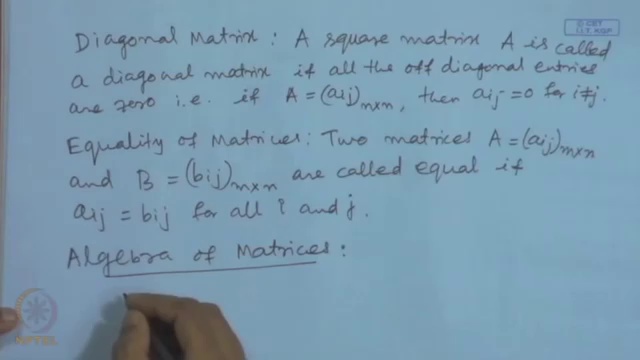 © CET
I.I.T. KGP
Diagonal Matrix : A square matrix A is called
a diagonal matrix if all the off diagonal entries
are zero i.e. if A = (aij)n×n, then aij = 0 for i≠j.
Equality of Matrices: Two matrices A = (aij)m×n
and B = (bij)m×n are called equal if
aij = bij for all i and j.
Algebra of Matrices:
NPTEL